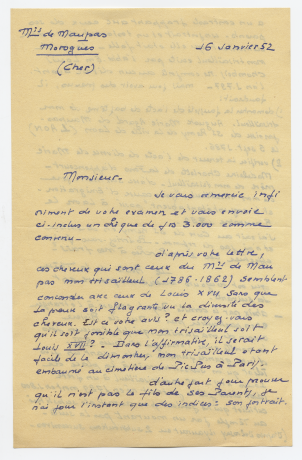 Mis de Maupas
Morogues
(Cher)
16 Janvier 52
Monsieur-
Je vous remercie infi
niment de votre examen et vous envoie
ci-inclus un chèque de frs 3.000 comme
convenu-
d'après votre lettre,
ces cheveux qui sont ceux du Mis de Mau
pas mon trisaïeul (1786-1862) semblent
concorder avec ceux de Louis XVII sans que
la preuve soit flagrante vu la diversité des
cheveux. Est ce votre avis? et croyez-vous
qu'il soit possible que mon trisaïeul soit
Louis XVII? - Dans l'affirmative, il serait
facile de le démontrer, mon trisaïeul étant
embaumé au cimetière de Picpus à Paris.
d'autre part pour prouver
qu'il n'est pas le fils de ses Parents, je
n'ai pour l'instant que des indices: son portrait.